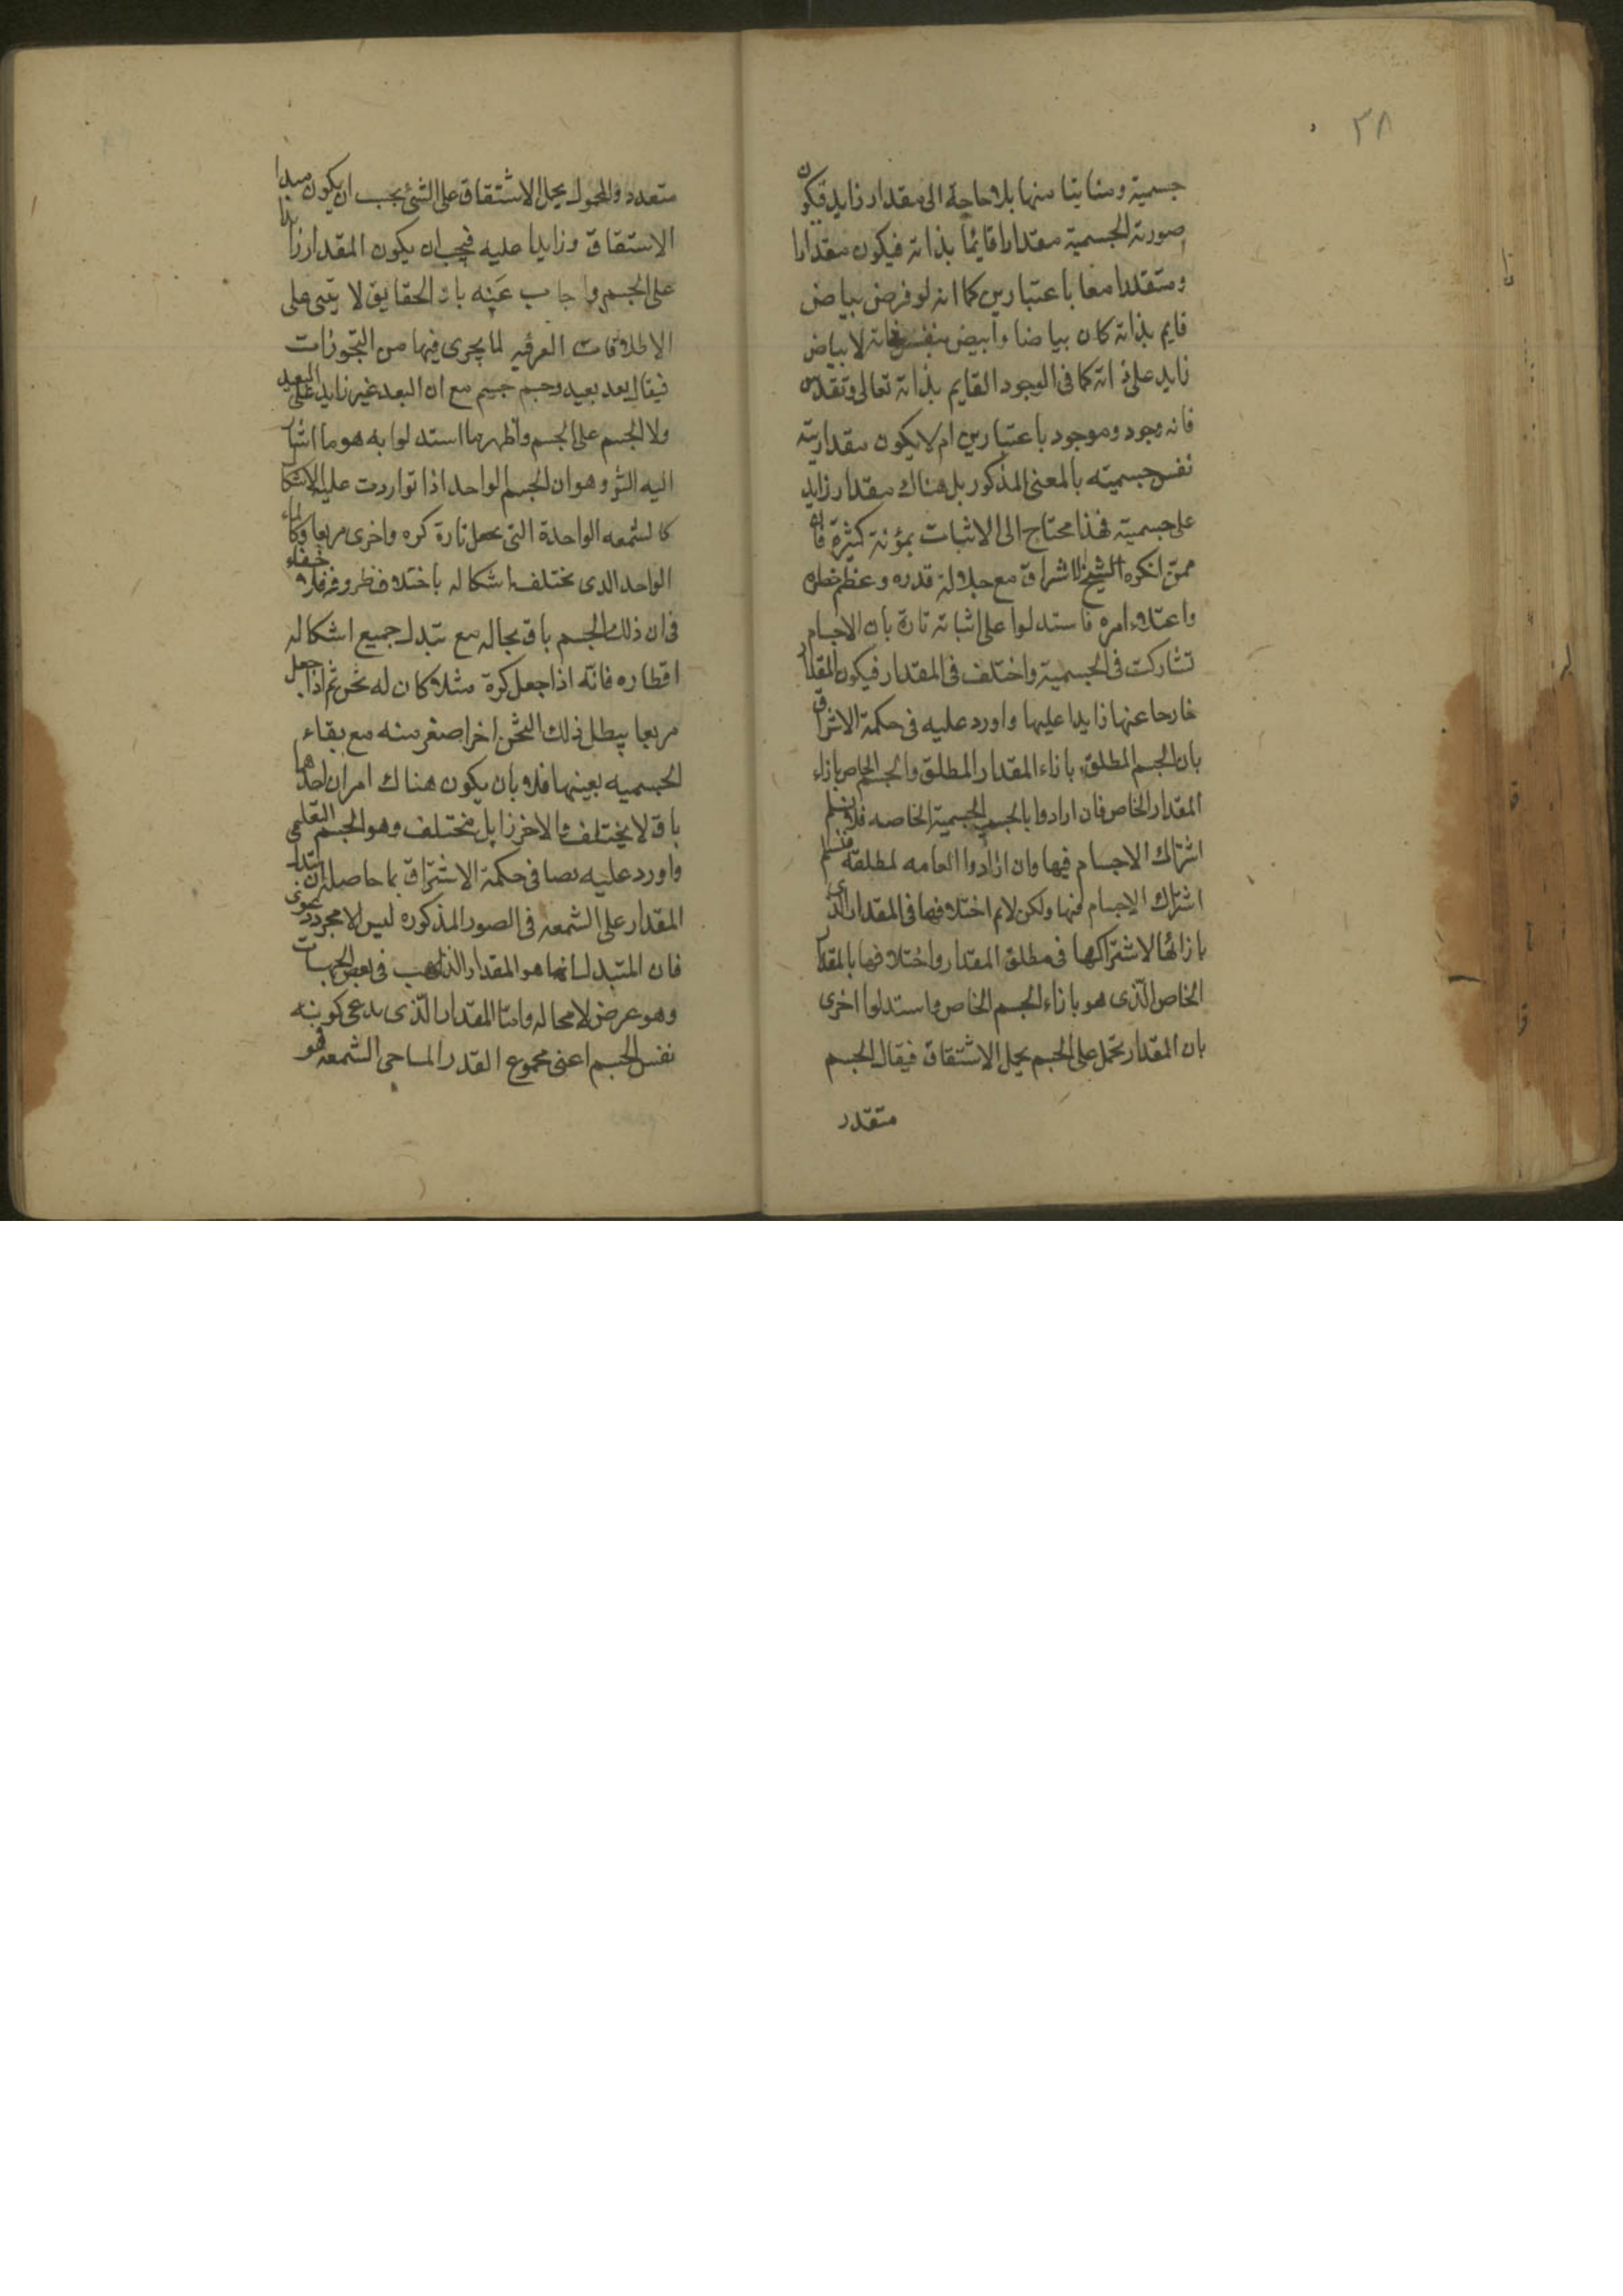 ٣٨
جسمية ومتناهيا منها بلا حاجة الى مقدار زايد فيكون
صورته الجسمية مقدارا قائما بذاته فيكون مقدارا
ومتقدرا معا باعتبارين كما انه لو فرض بياض
قايم بذاته كان بياضا وابيض بنفس ذاته لا ببياض
زايد على ذاته كما فى الوجود القايم بذاته تعالى وتقدس
فانه وجود وموجود باعتبارين ام لا يكون مقداريته
نفس جسميته بالمعنى المذكور بل هناك مقدار زايد
على جسميته فهذا محتاج الى الاثبات بمؤنة كثيرة فان
ممن انكره الشيخ الاشراق مع جلالة قدره وعظم خطره
واعتلاء امره فاستدلوا على اثباته تارة بان الاجسام
تشاركت فى الجسمية واختلف فى المقدار فيكون المقدار
خارجا عنها زايدا عليها واورد عليه فى حكمة الاشراق
بان الجسم المطلق بازاء المقدار المطلق والجسم الخاص بازاء
المقدار الخاص فان ارادوا بالجسمية الجسمية الخاصه فلا نسلم
اشتراك الاجسام فيها وان ارادوا العامه لمطلقة فنسلم
اشتراك الاجسام فيها ولكن لانم اختلافها فى المقدار الذى
بازائها لاشتراكها فى مطلق المقدار واختلافها بالمقدار
الخاص الّذى هو بازاء الجسم الخاص واستدلوا اخرى
بان المقدار تحمل على الجسم بحمل الاشتقاق فيقال الجسم
متقدر
متعدد والمحمول بحمل الاشتقاق على الشئ يجب ان يكون مبدا
الاستقاق وزايدا عليه فيجب ان يكون المقدار زايدا
على الجسم واجاب عَنه بان الحقايق لا يتبى على
الاطلاقات العرفيه لما يجرى فيها من التجّوزات
فيقال بعد بعيد وجسم جسيم مع ان البعد غير زايد على البعد
ولا الجسم على الجسم واظهر ما استدلوا به هو ما اشار
اليه الشؤ وهو ان الجسم الواحد اذا تواردت عليه الاشكال
كالشمعه الواحدة التى يجعل تارة كره واخرى مربعا وكالماء
الواحد الذى يختلف اشكاله باختلاف ظروفه فلا خفاء
فى ان ذلك الجسم باق بحاله مع تبدل جميع اشكاله
اقطاره فانّه اذا جعل كرة مثلا كان له ثخن ثم اذا جعل
مربعا يبطل ذلك الثخن اخر اصغر منه مع بقاء
الجسميه بعينها فلا بان يكون هناك امران احدهما
باق لا يختلف والاخر زايل مختلف وهو الجسم التعليمى
واورد عليه نصا فى حكمة الاشراق بما حاصله ان تبدل
المقدار على الشمعه فى الصور المذكوره ليس الا مجرد دعوى
فان المتبدل انما هو المقدار الذاهب فى بعض الجهات
وهو عرض لا محاله وامّا المقدار الّذى يدعى كونه
نفس الجسم اعنى مجموع القدر المساحى الشمعه فهو